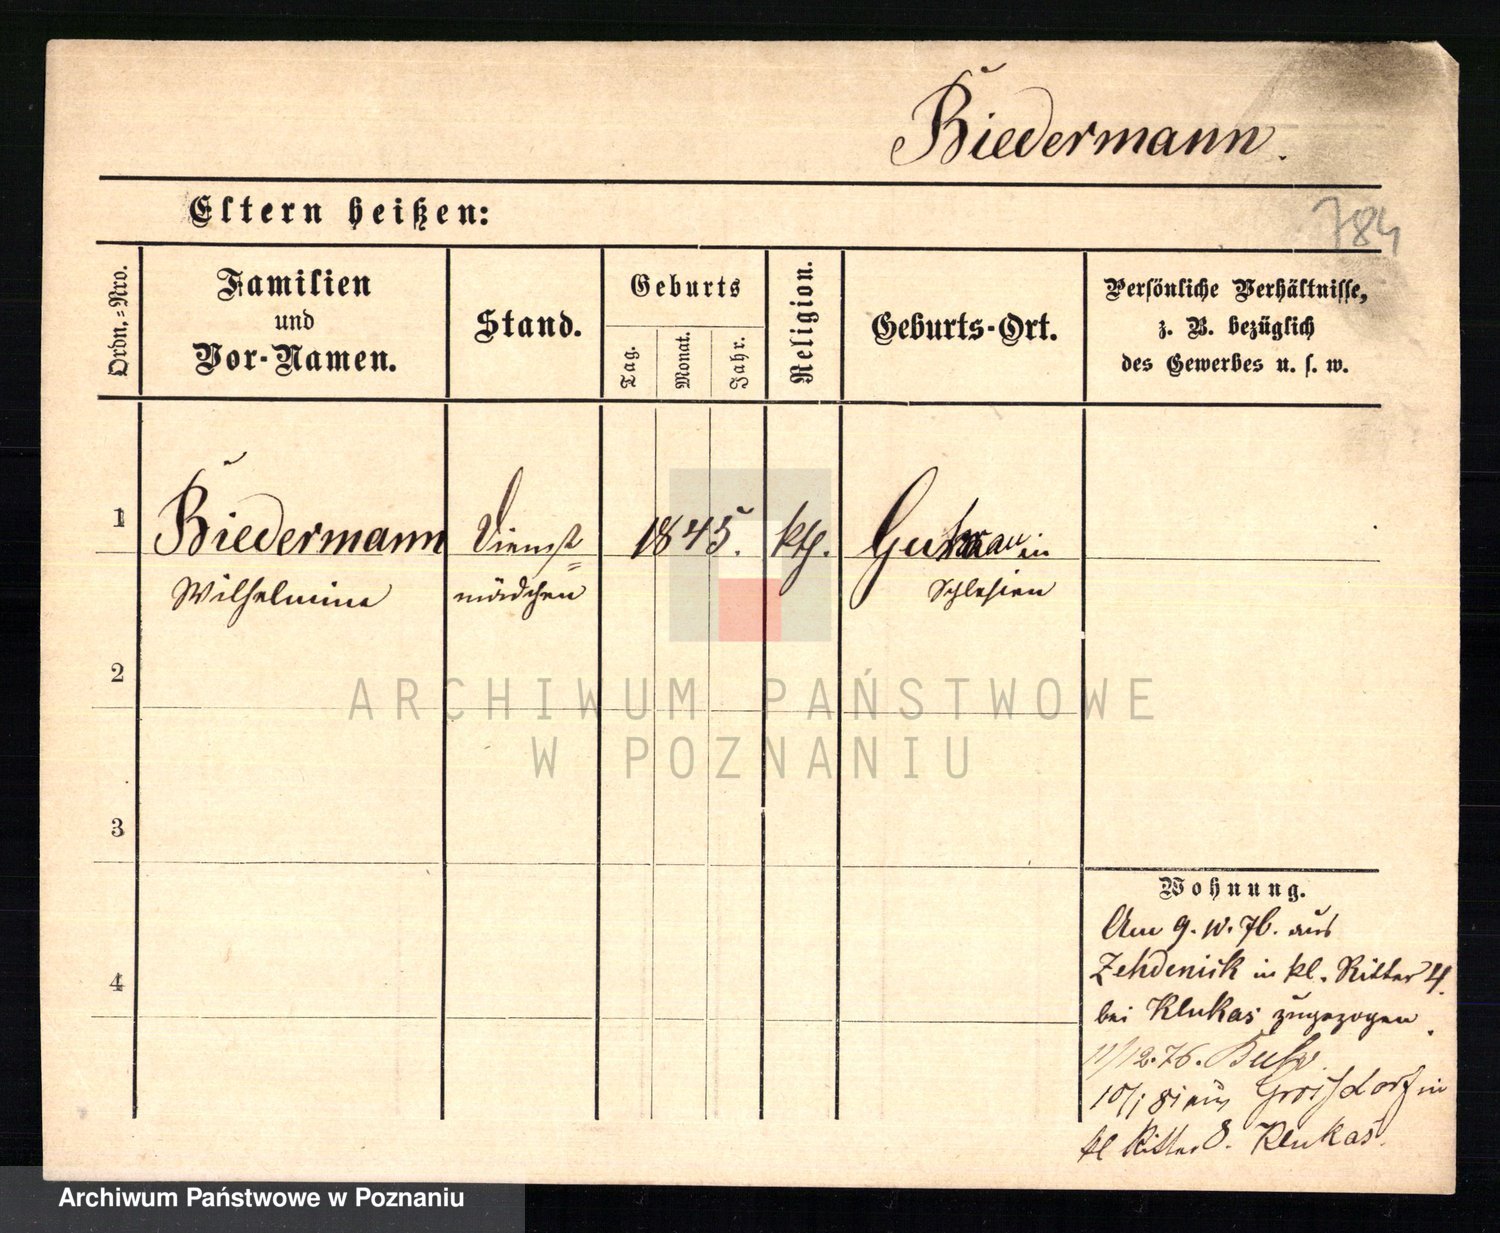 Biedermann.
Eltern heißen:
784
Ordn.=Nro.
Familien
und
Vor-Namen.
Stand.
Geburts
Tag.
Monat.
Jahr.
Religion.
Geburts-Ort.
Persönliche Verhältnisse,
z. B. bezüglich
des Gewerbes u. s. w.
1
Biedermann
Wilhelmine
Dienst=
mädchen
1845.
kth.
Guhrau in
Schlesien
2
3
4
ARCHIWUM PAŃSTWOWE
W POZNANIU
Wohnung.
Am 9. 76. aus
Zehdenick in kl. Ritter 4.
bei Klukas zugezogen.
11/12.76.
10/1 81 aus Groisdorf in
kl Ritter 8. Klukas.
Archiwum Państwowe w Poznaniu